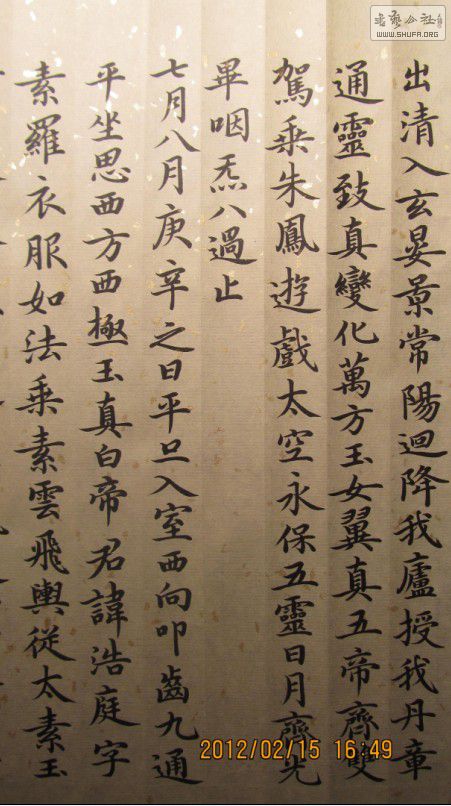 出清入玄晏景常陽迴降我廬授我丹章
通靈致真變化萬方玉女翼真五帝齊雙
駕乘朱鳳遊戲太空永保五靈日月齊光
畢咽炁八過止
七月八月庚辛之日平旦入室西向叩齒九通
平坐思西方西極玉真白帝君諱浩庭字
素羅衣服如法乘素雲飛輿從太素玉
書藝公社
WWW.SHUFA.ORG
2012/02/15 16:49